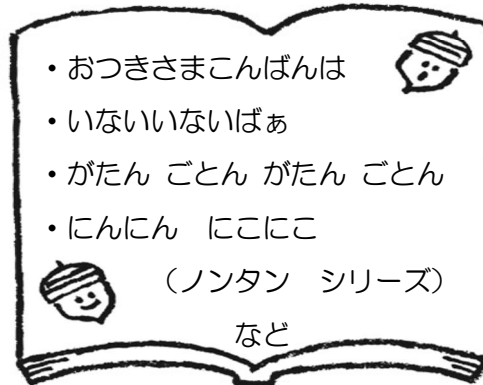 ・おつきさまこんばんは
・いないいないばぁ
・がたん ごとん がたん ごとん
・にんにん　にこにこ
（ノンタン　シリーズ）
など